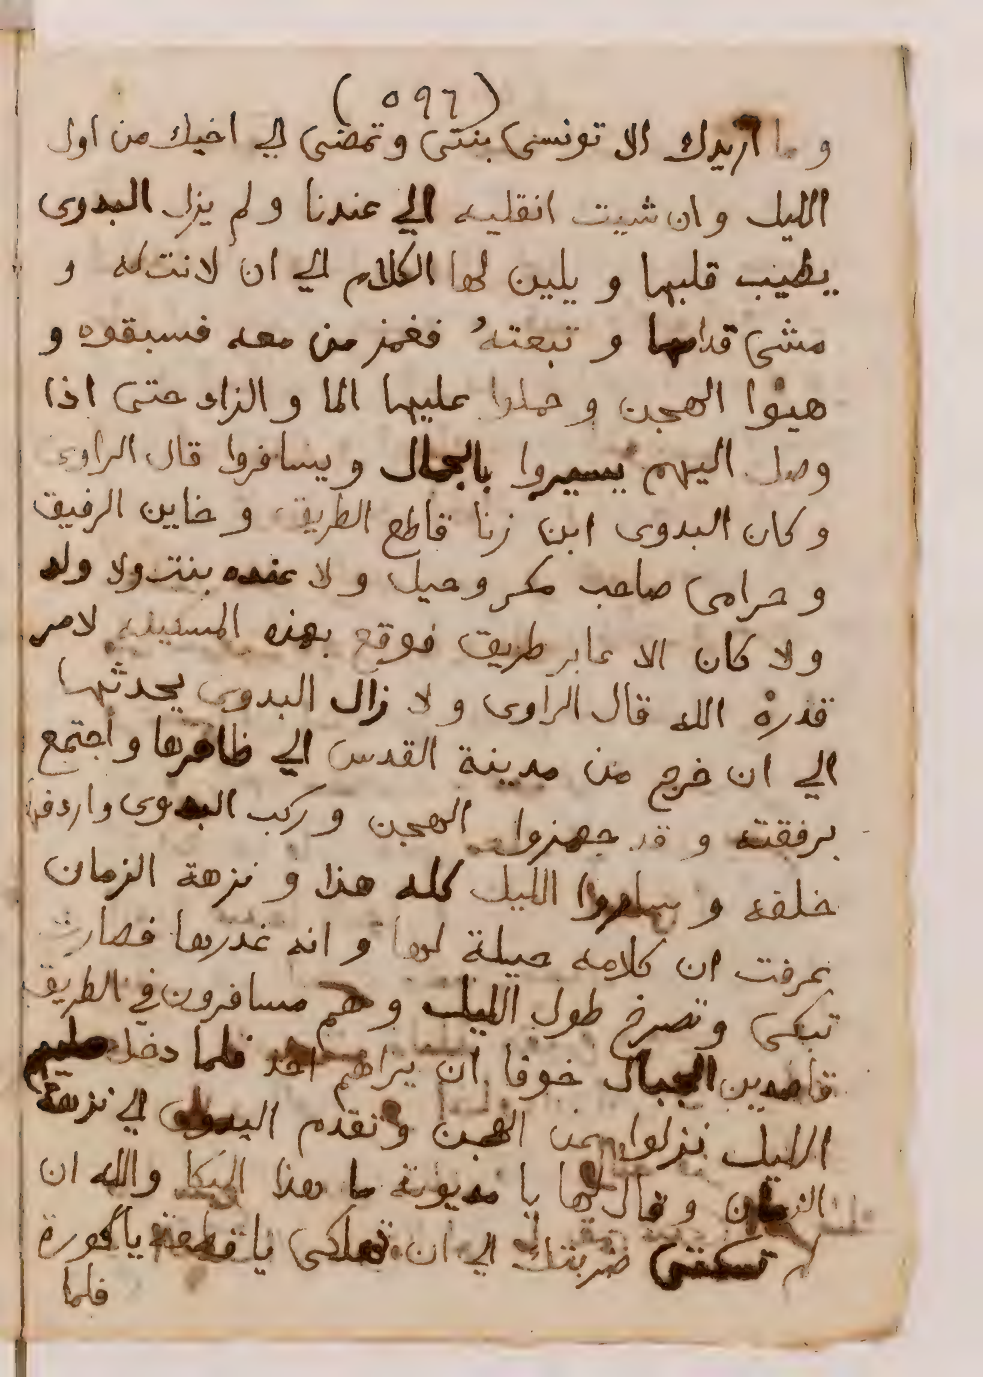 (٥٩٦)
و ما اريدك الا تونسى بنتى و تمضى الي اخيك من اول
الليل و ان شيت انقليه الي عندنا و لم يزل البدوى
يطيب قلبها و يلين لها الكلام الي ان لانت له و
مشى قدامها و تبعتهُ فغمز من معه فسبقوه و
هيئوا الهجن و حملوا عليها الما و الزاد حتى اذا
وصل اليهم يسيروا بالجمال و يسافروا قال الراوى
و كان البدوى ابن زنا قاطع الطريق و خاين الرفيق
و حرامى صاحب مكر و حيل و لا عنده بنت ولا ولد
ولا كان الا عابر طريق فوقع بهذه المسكينه لامر
قدره الله قال الراوى و لا زال البدوى يحدثها
الي ان خرج من مدينة القدس الي ظاهرها و اجتمع
برفقته و قد جهزوا الهجن و ركب البدوى واردفها
خلفه و ساروا الليل كله هذا و نزهة الزمان
عرفت ان كلامه حيلة لها و انه غدرها فصارت
تبكى و تصرخ طول الليل و هم مسافرون في الطريق
قاصدين الجبال خوفا ان يراهم احد فلما دخل عليهم
الليل نزلوا من الهجن و تقدم البدوى الي نزهة
الزمان و قال لها يا مديونة ما هذا البكا والله ان
لم تسكتى ضربتك الي ان تهلكى يا قطعة يا
فلما